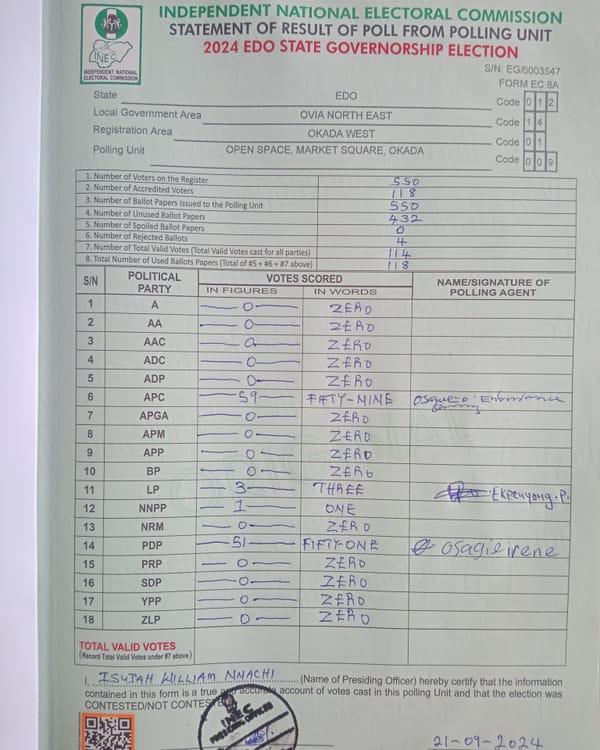 INDEPENDENT NATIONAL ELECTORAL COMMISSION
STATEMENT OF RESULT OF POLL FROM POLLING UNIT
2024 EDO STATE GOVERNORSHIP ELECTION
INEC
INDEPENDENT NATIONAL
ELECTORAL COMMISSION
S/N: EG/0003547
FORM EC 8A
State EDO Code 0 1 2
Local Government Area OVIA NORTH EAST Code 1 4
Registration Area OKADA WEST Code 0 1
Polling Unit OPEN SPACE, MARKET SQUARE, OKADA Code 0 0 9
1. Number of Voters on the Register 550
2. Number of Accredited Voters 118
3. Number of Ballot Papers Issued to the Polling Unit 550
4. Number of Unused Ballot Papers 432
5. Number of Spoiled Ballot Papers 0
6. Number of Rejected Ballots 4
7. Number of Total Valid Votes (Total Valid Votes cast for all parties) 114
8. Total Number of Used Ballots Papers (Total of #5 + #6 + #7 above) 118
S/N POLITICAL PARTY VOTES SCORED NAME/SIGNATURE OF POLLING AGENT
IN FIGURES IN WORDS
1 A 0 ZERO
2 AA 0 ZERO
3 AAC 0 ZERO
4 ADC 0 ZERO
5 ADP 0 ZERO
6 APC 59 FIFTY-NINE
7 APGA 0 ZERO
8 APM 0 ZERO
9 APP 0 ZERO
10 BP 0 ZERO
11 LP 3 THREE Ekpenyong .P.
12 NNPP 1 ONE
13 NRM 0 ZERO
14 PDP 51 FIFTY-ONE Osagie irene
15 PRP 0 ZERO
16 SDP 0 ZERO
17 YPP 0 ZERO
18 ZLP 0 ZERO
TOTAL VALID VOTES
(Record Total Valid Votes under #7 above)
I, ISUTAH WILLIAM NNACHI (Name of Presiding Officer) hereby certify that the information
contained in this form is a true and accurate account of votes cast in this polling Unit and that the election was
CONTESTED/NOT CONTESTED
INEC
21-09-2024